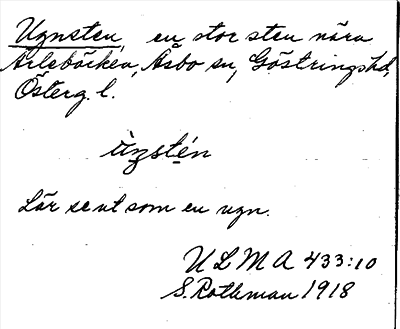 Ugnsten, en stor sten nära
Arlebäcken, Åsbo sn, Göstringshd,
Österg. l.
ùnstén
Lär se ut som en ugn.
ULMA 433:10
S. Rothman 1918